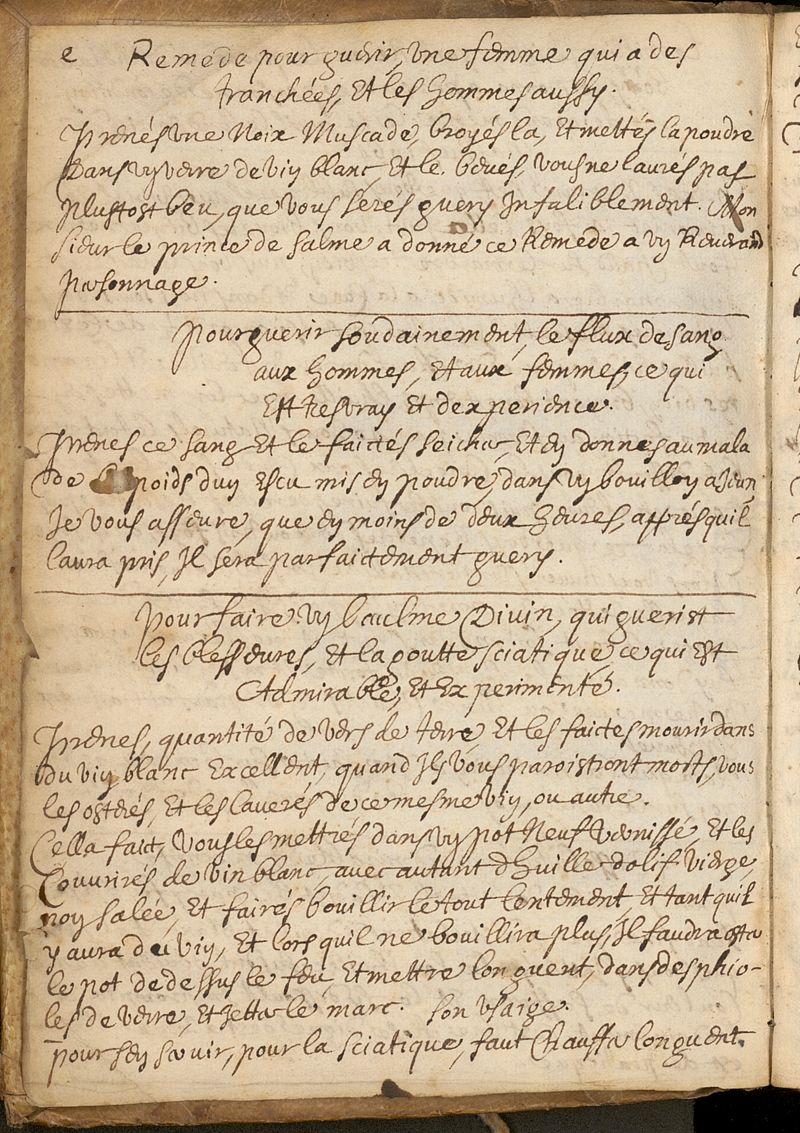 e Remede pour guerir, une femme qui a des
tranchées, Et les hommes aussy.
Prenés une Noix Muscade, broyés la, Et mettés la poudre
Dans vy verre de viy blanc, Et le beués, vous ne laurés pas
plustost beu, que vous serés guery Infaliblement. Mon
sieur le prince de salme a donné ce Remede a vy Reuerand
personnage.
pour guerir soudainement, le flux de sang
aux hommes, Et aux femmes, ce qui
Est tres vray Et dexperience.
Prenes ce sang Et le faictés seicher, Et ey donnes au mala
de poids duy escu mis ey poudre, dans vy bouilloy a Jeun
Je vous asseure, que ey moins de deux heures, apprés quil
laura pris, Il sera parfaictement guery.
pour faire vy baulme Divin, qui guerist
les blesseures, Et la goutte sciatique, ce qui Est
Admirable, Et Experimenté.
Prenes, quantité de vers de terre, Et les faictes mourir dans
du viy blanc Excellent, quand Ils vous paroistront morts, vous
les osterés, Et les laverés de ce mesme viy, ou autre.
Cella faict, vous les mettrés dans vy pot Neuf vernissé, Et les
Couvrirés de vin blanc, avec autant dhuille dolif vierge,
noy salée, Et fairés bouillir le tout lentement, Et tant quil
y aura du viy, Et lors quil ne bouillira plus, Il faudra oster
le pot de dessus le feu, Et mettre longuent, dans des phio-
les de verre, Et Jetter le marc. son vsaige.
pour sey servir, pour la sciatique, faut Chauffer longuent